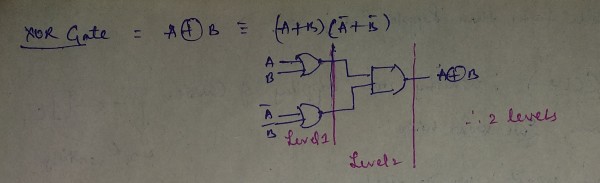 XOR Gate = A⊕B ≡ (A+B)(Ā+B̄)
A
B
A⊕B
Ā
B̄
Level 1
Level 2
∴ 2 levels